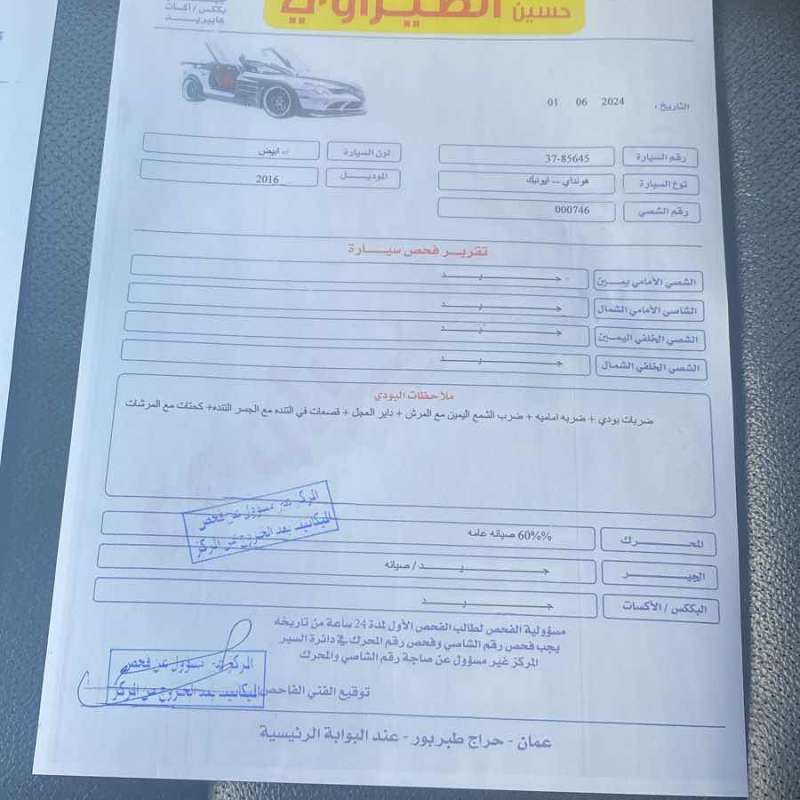 بكس / أكسات
هايبريد
حسين الطيراوي
التاريخ : 01 06 2024
رقم السيارة 37-85645
لون السيارة ابيض
نوع السيارة هونداي -- ايونيك
الموديل 2016
رقم الشصي 000746
تقرير فحص سيارة
الشصي الأمامي يمين جيد
الشاسي الأمامي الشمال جيد
الشصي الخلفي اليمين جيد
الشصي الخلفي الشمال جيد
ملاحظات البودي
ضربات بودي + ضربه اماميه + ضرب الشمع اليمين مع المرش + داير العجل + قصعات في التنده مع الجسر التنده+ كحتات مع المرشات
المركز غير مسؤول عن فحص
الميكانيك بعد الخروج من المركز
المحرك 60%% صيانه عامه
الجير جيد / صيانه
البكس / الأكسات جيد
مسؤولية الفحص لطالب الفحص الأول لمدة 24 ساعة من تاريخه
يجب فحص رقم الشاصي وفحص رقم المحرك في دائرة السير
المركز غير مسؤول عن صاجة رقم الشاصي والمحرك
المركز غير مسؤول عن فحص
الميكانيك بعد الخروج من المركز
توقيع الفني الفاحص
عمان - حراج طبربور - عند البوابة الرئيسية